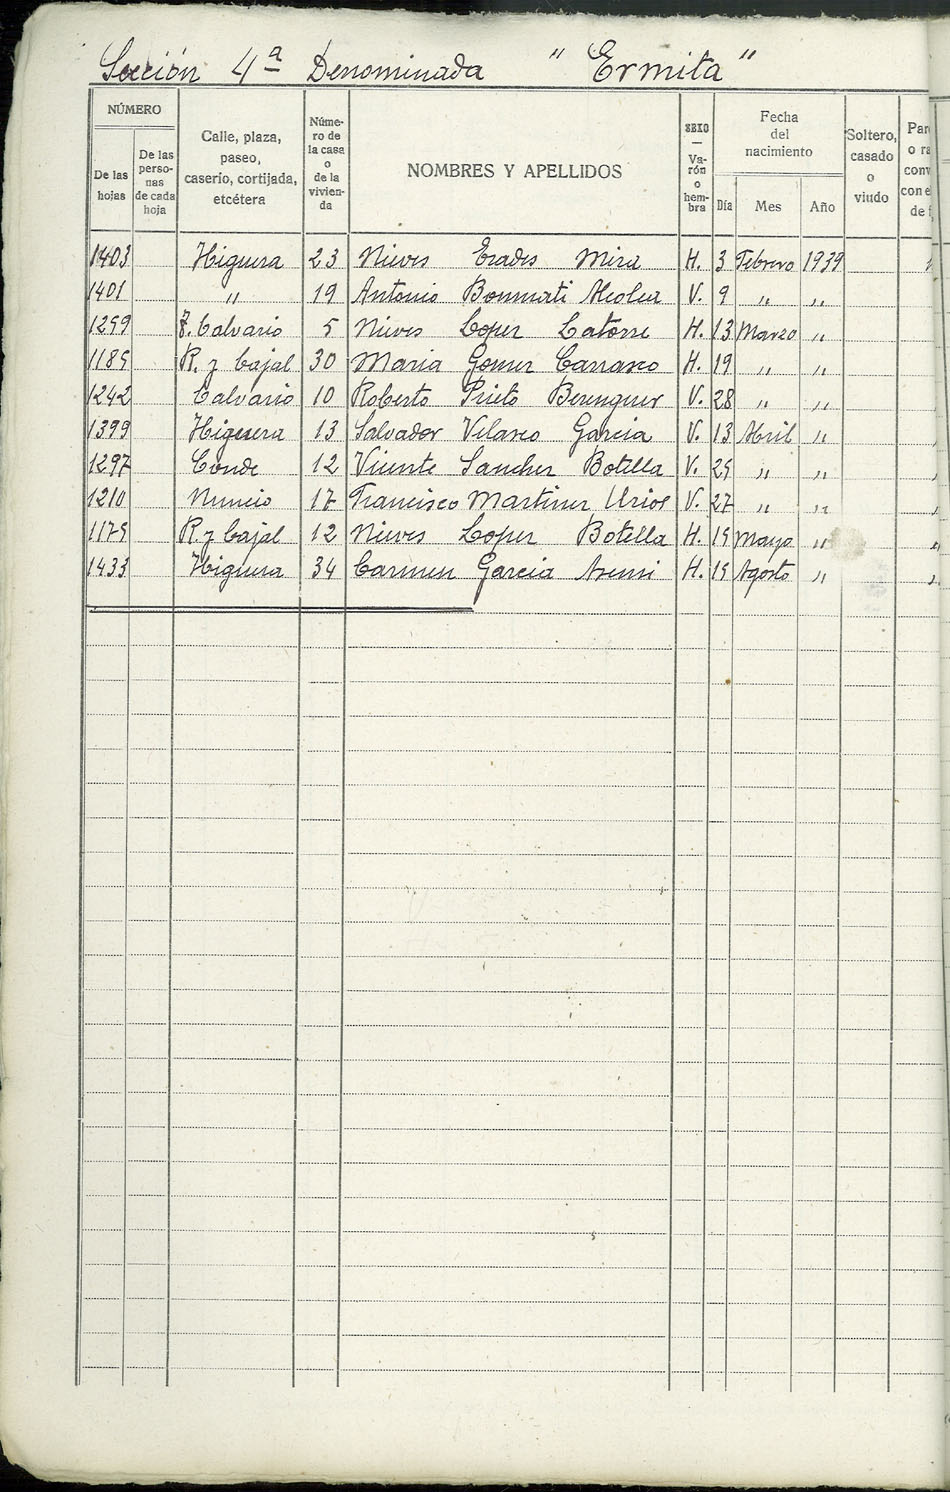 Sección 4ª Denominada " Ermita "
NÚMERO
De las hojas
De las perso- nas de cada hoja
Calle, plaza, paseo, caserío, cortijada, etcétera
Núme- ro de la casa o de la vivien- da
NOMBRES Y APELLIDOS
SEXO — Va- rón o hem- bra
Fecha del nacimiento
Día Mes Año
Soltero, casado o viudo
1403 Higuera 23 Nieves Erades Mira H. 3 Febrero 1939
1401 " 19 Antonio Bonmati Alcolea V. 9 " "
1259 Calvario 5 Nieves Lopez Latorre H. 13 Marzo "
1185 R. y Cajal 30 Maria Gomez Carrasco H. 19 " "
1242 Calvario 10 Roberto Prieto Berenguer V. 28 " "
1399 Higuera 13 Salvador Vilasco Garcia V. 13 Abril "
1297 Conde 12 Vicente Sanchez Botella V. 25 " "
1210 Nuncio 17 Francisco Martinez Urios V. 27 " "
1175 R. y Cajal 12 Nieves Lopez Botella H. 15 Mayo "
1433 Higuera 34 Carmen Garcia Asensi H. 15 Agosto "